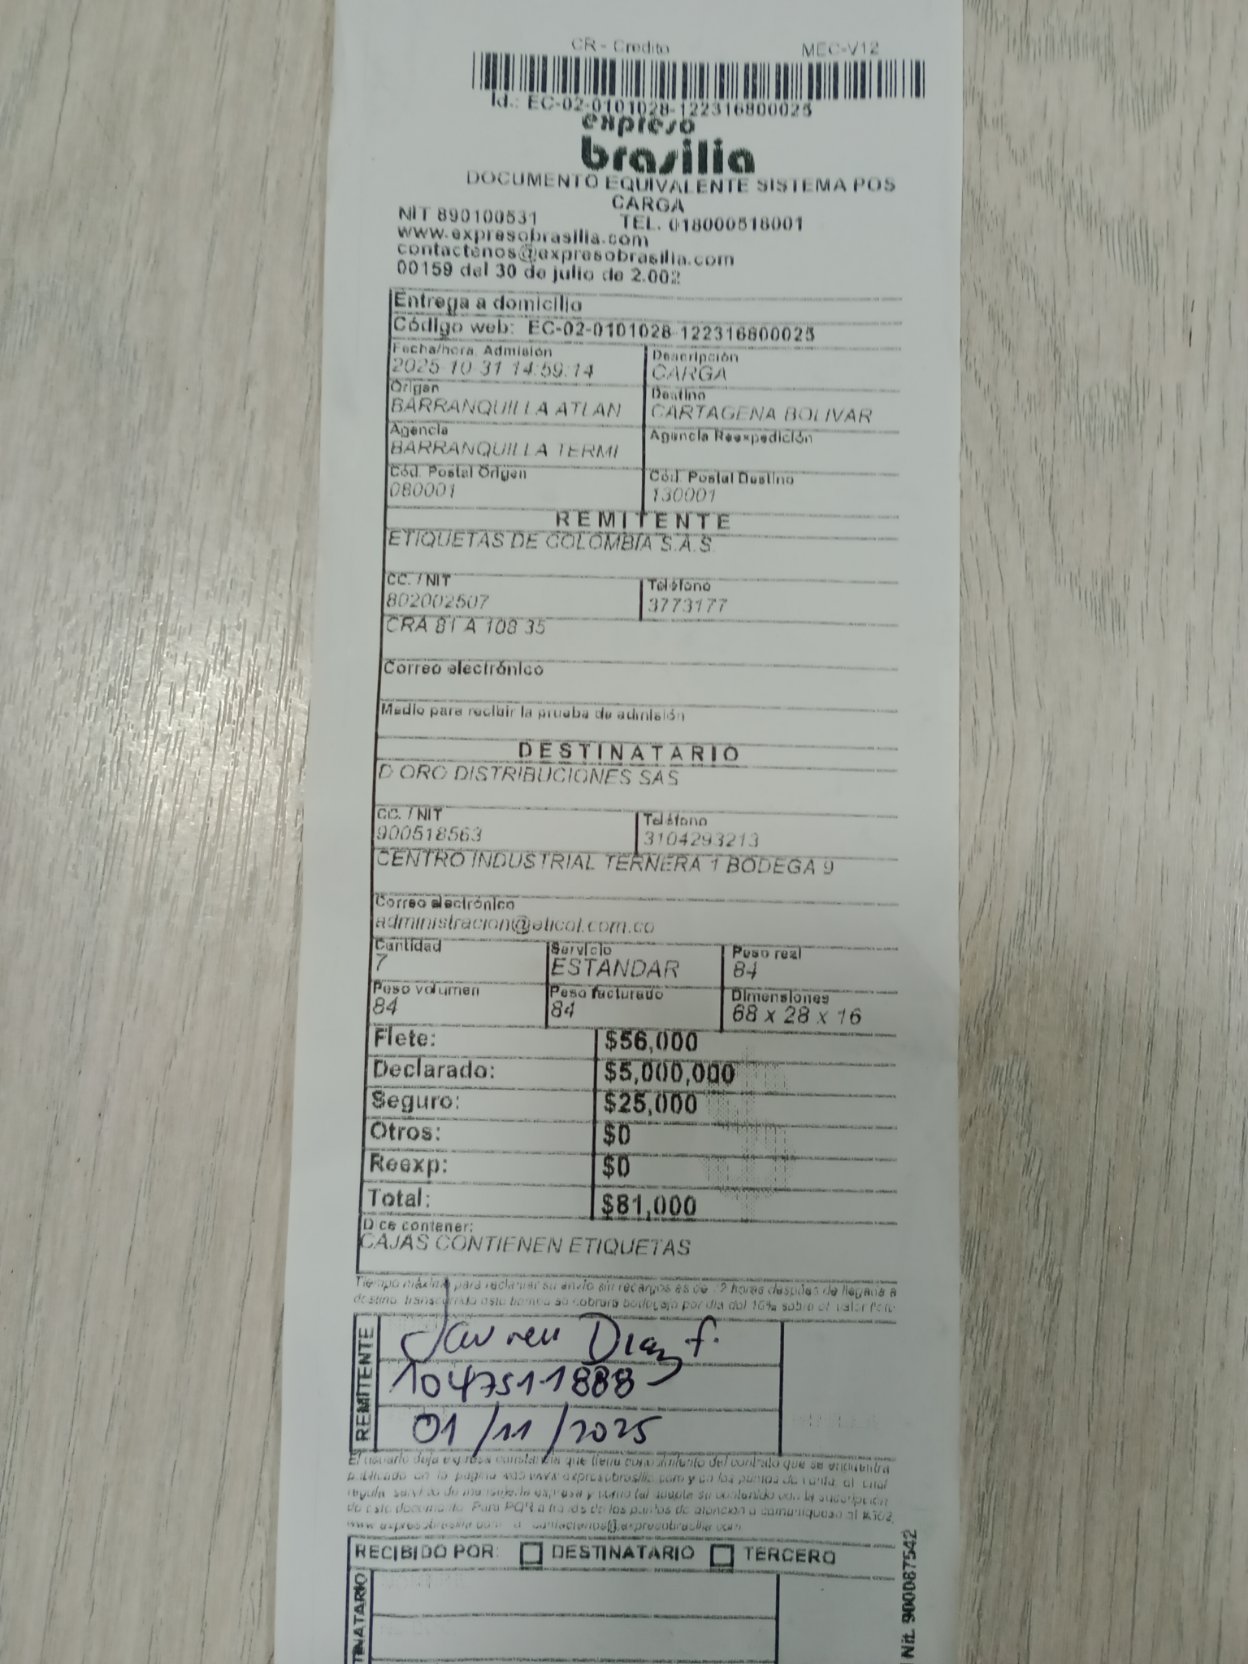 CR - Credito MEC-V12
Id.: EC-02-0101028-122316800025
expreso
brasilia
DOCUMENTO EQUIVALENTE SISTEMA POS
CARGA
NIT 890100531 TEL. 018000518001
www.expresobrasilia.com
contactenos@expresobrasilia.com
00159 del 30 de julio de 2.002
Entrega a domicilio
Código web: EC-02-0101028-122316800025
Fecha/hora Admisión Descripción
2025-10-31 14:59:14 CARGA
Origen Destino
BARRANQUILLA ATLAN CARTAGENA BOLIVAR
Agencia Agencia Reexpedición
BARRANQUILLA TERMI
Cód. Postal Origen Cód. Postal Destino
080001 130001
REMITENTE
ETIQUETAS DE COLOMBIA S.A.S.
CC. / NIT Teléfono
802002507 3773177
CRA 81 A 108 35
Correo electrónico
Medio para recibir la prueba de admisión
DESTINATARIO
D ORO DISTRIBUCIONES SAS
CC. / NIT Teléfono
900518563 3104293213
CENTRO INDUSTRIAL TERNERA 1 BODEGA 9
Correo electrónico
administracion@eticol.com.co
Cantidad Servicio Peso real
7 ESTANDAR 84
Peso volumen Peso facturado Dimensiones
84 84 68 x 28 x 16
Flete: $56,000
Declarado: $5,000,000
Seguro: $25,000
Otros: $0
Reexp: $0
Total: $81,000
Dice contener:
CAJAS CONTIENEN ETIQUETAS
Tiempo máximo para reclamar su envío sin recargos es de horas después de llegada a
destino, transcurrido este tiempo se cobrará bodegaje por día del 10% sobre el valor flete
REMITENTE
Diaz f.
1047511888
01/11/2025
El usuario deja expresa constancia que tiene conocimiento del contrato que se encuentra
publicado en la página web www.expresobrasilia.com y en los puntos de venta, el cual
regula servicio de mensajería expresa y como tal adopta su contenido con la suscripción
de este documento. Para PQR a través de los puntos de atención o comuníquese al
www.expresobrasilia.com o contactenos@expresobrasilia.com
RECIBIDO POR: DESTINATARIO TERCERO
TINATARIO
Nit. 900087542